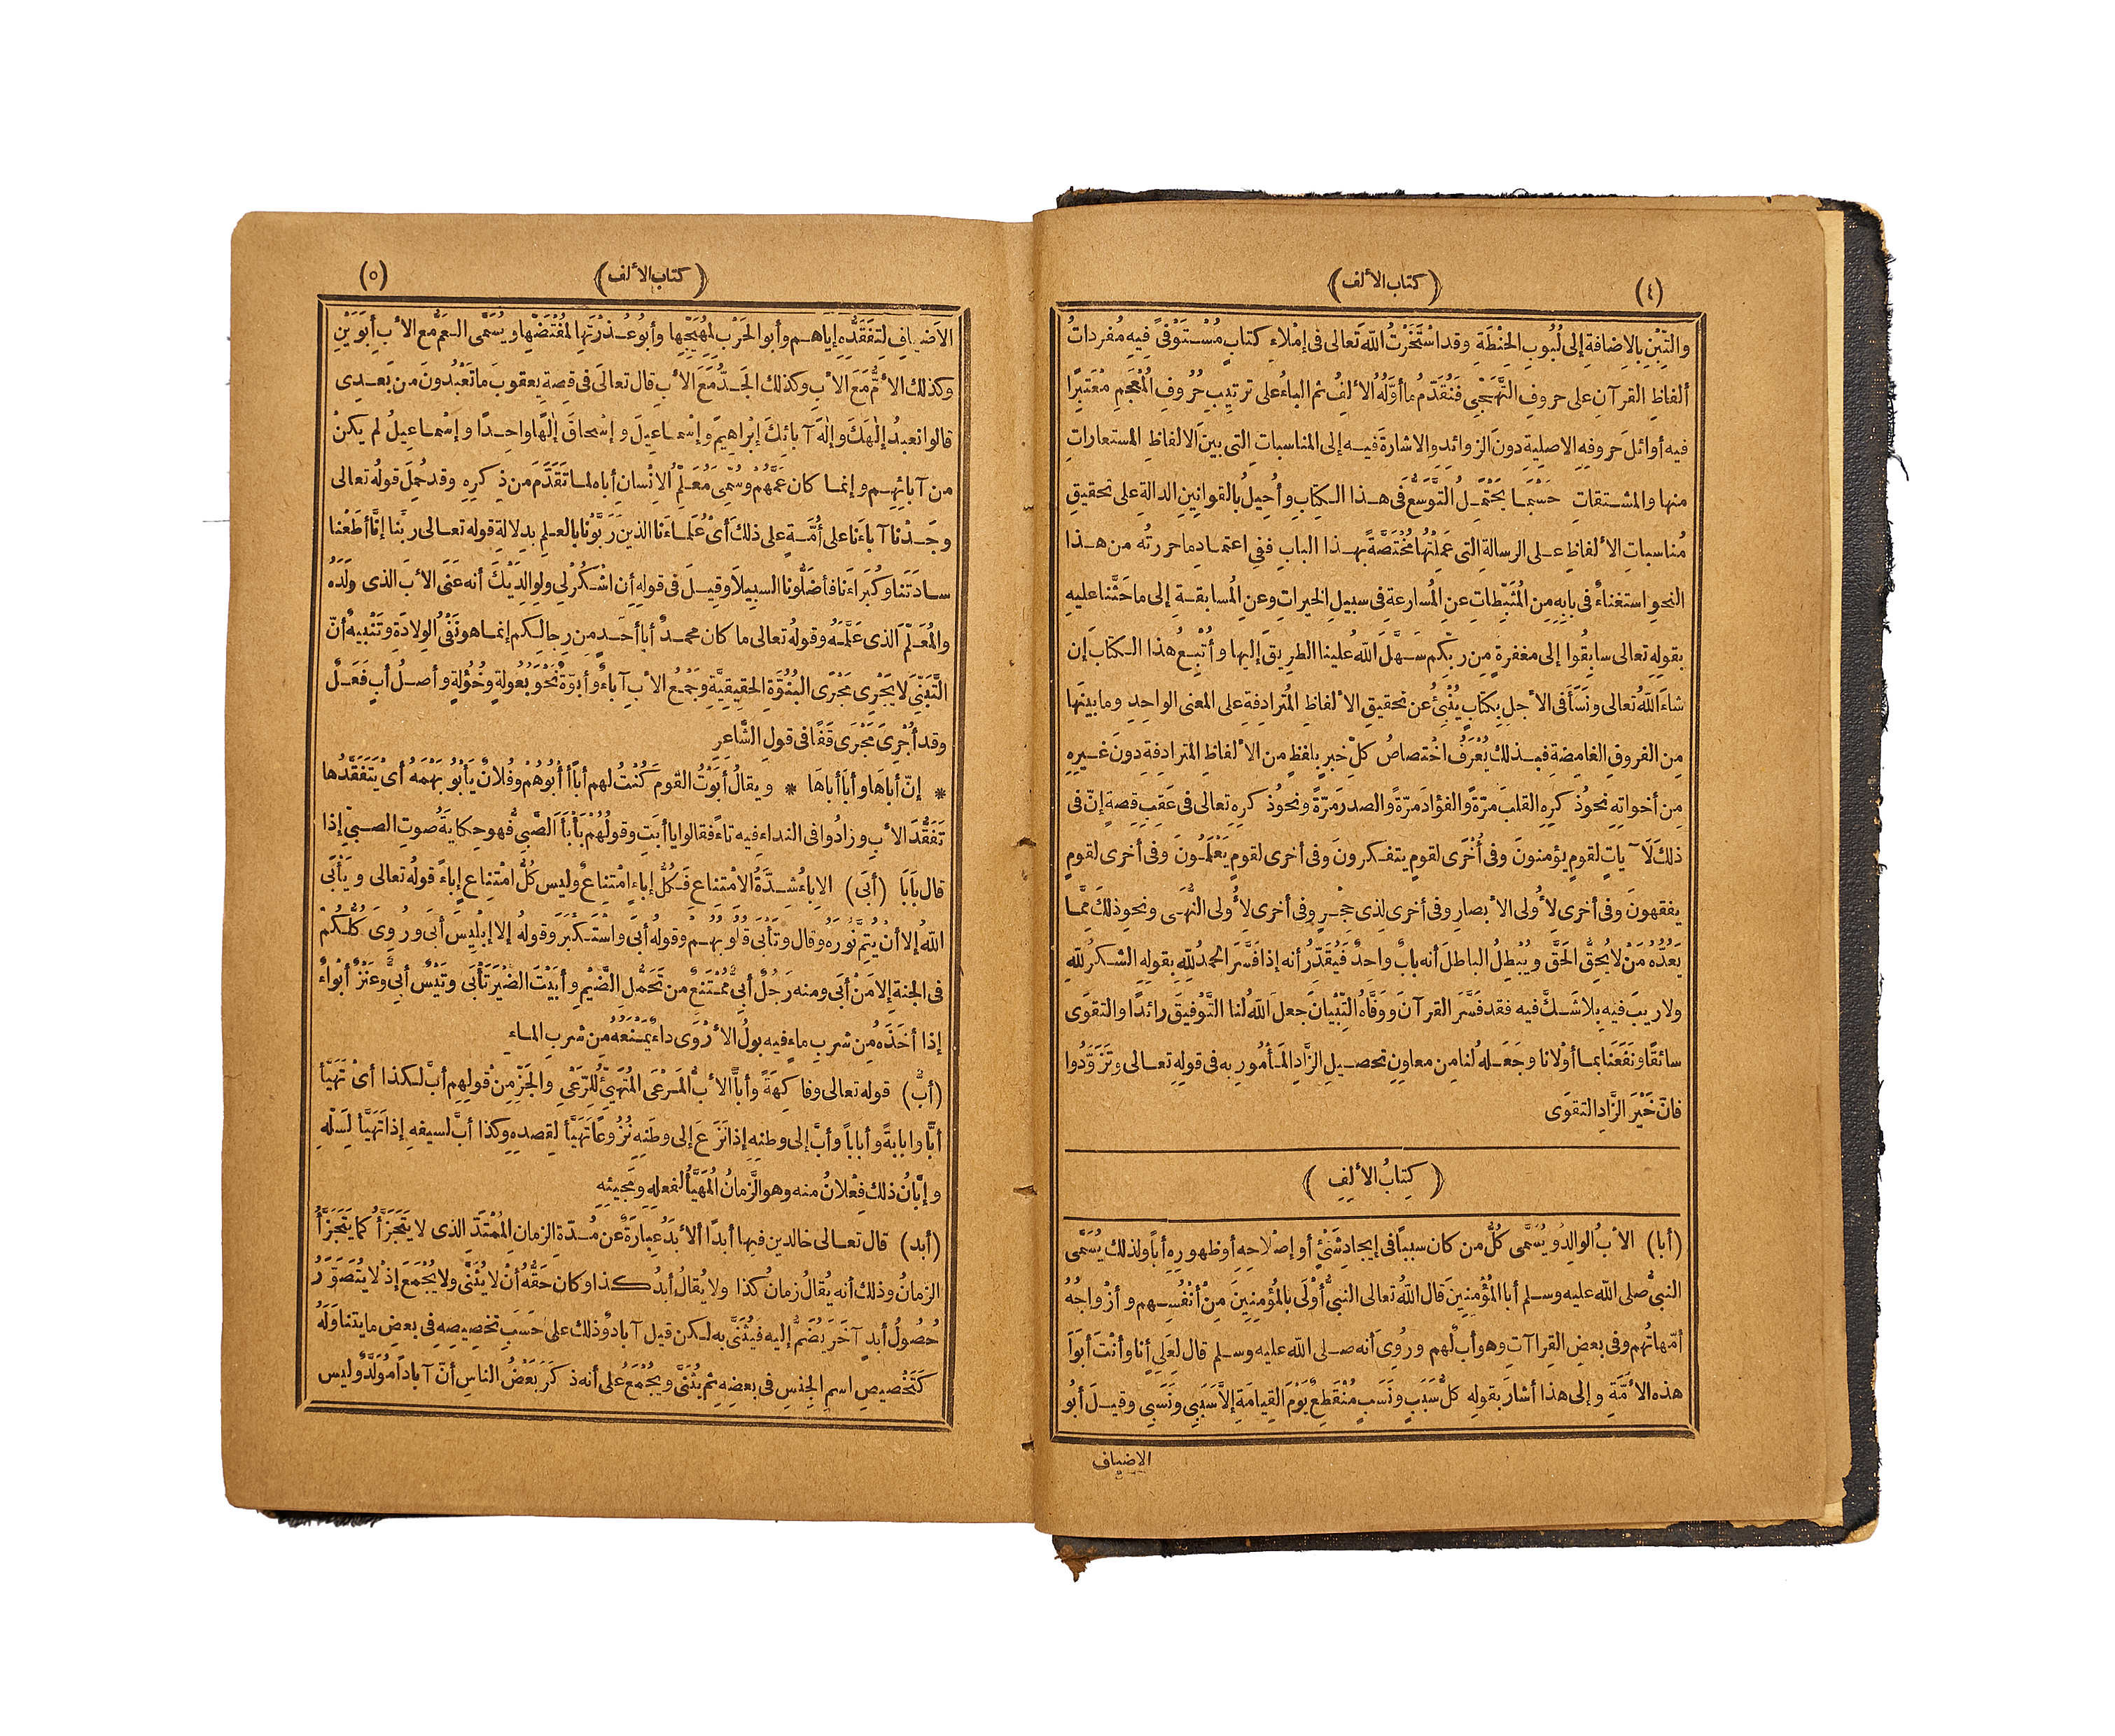 (٤)
(كتاب الألف)
والتِبْنِ بالإضافةِ إلى لُبُوبِ الحِنْطَةِ وقد اسْتَخَرْتُ اللهَ تعالى فى إمْلاءِ كتابٍ مُسْتَوْفًى فِيهِ مُفرداتُ
ألفاظِ القرآنِ على حروفِ التَّهَجِّى فَنُقَدّمُ ما أوَّلُهُ الألِفُ ثم الباءُ على ترتيبِ حُرُوفِ المُعْجَمِ مُعْتَبِرًا
فيه أوائلَ حروفِهِ الاصلِيةِ دونَ الزوائدِ والاشارةَ فيه إلى المناسباتِ التى بينَ الالفاظِ المستعاراتِ
منها والمشتقاتِ حَسْبَمَا يَحْتَمِلُ التَّوَسُّعَ فى هذا الكتابِ وأُحِيلُ بالقوانِينِ الدالةِ على تحقيقِ
مُناسباتِ الألفاظِ على الرسالةِ التى عَمِلْتُها مُخْتَصَّةً بهذا البابِ ففِى اعتمادِ ما حررتُه من هذا
النحوِ استغناءٌ فى بابِهِ مِن المُثَبِّطاتِ عنِ المُسارعةِ فى سبيلِ الخيراتِ وعنِ المُسابقةِ إلى ما حَثَّنا عليهِ
بقوله تعالى سابِقُوا إلى مغفرةٍ مِن ربِّكم سَهَّلَ اللهُ علينا الطرِيقَ إليها وأُتْبِعُ هذا الكتابَ إن
شاءَ اللهُ تعالى ونَسَأَ فى الأجلِ بِكتابٍ يُنْبِئُ عن تحقيقِ الألفاظِ المُترادِفةِ على المعنى الواحِدِ وما بينَها
مِن الفروقِ الغامِضةِ فبذلك يُعْرَفُ اخْتصاصُ كلِّ خبرٍ بلفظٍ من الألفاظِ المترادِفةِ دونَ غيرِهِ
مِن أخواتِهِ نحوُ ذكرِهِ القلبَ مرّةً والفؤادَ مرّةً والصدرَ مَرّةً ونحوُ ذكرِهِ تعالى فى عَقِبِ قِصةٍ إنّ فى
ذلكَ لَآياتٍ لقومٍ يؤمنونَ وفى أُخْرَى لقومٍ يتفكرونَ وفى أخرى لقومٍ يَعْلَمُونَ وفى أخرى لقومٍ
يفقهونَ وفى أخرى لِأُولى الأبصارِ وفى أخرى لذِى حِجْرٍ وفى أخرى لِأُولى النُّهَى ونحوِ ذلكَ مِمَّا
يَعُدُّهُ مَنْ لا يُحِقُّ الحَقَّ ويُبْطِلُ الباطلَ أنه بابٌ واحدٌ فَيُقَدِّرُ أنه إذا فَسَّرَ الحمدُ لِلّهِ بقولِهِ الشكرُ لِلهِ
ولا ريبَ فيه بِلا شَكَّ فيه فقد فَسَّرَ القرآنَ وَوَفَّاهُ التِّبْيانَ جعلَ اللهُ لنا التَّوْفيقَ رائدًا والتقوَى
سائقًا ونَفَعَنا بما أوْلانا وجَعَلهُ لنا مِن معاوِنِ تحصيلِ الزَّادِ المَأْمُورِ به فى قولِهِ تعالى وتَزَوَّدُوا
فانّ خَيْرَ الزَّادِ التقوَى
(كِتابُ الألِفِ)
(أبا) الأبُ الوالِدُ ويُسَمَّى كُلُّ من كان سببًا فى إيجادِ شَىْءٍ أو إصْلاحِهِ أو ظهورِهِ أبًا ولذلك يُسَمَّى
النبىُّ صلى الله عليه وسلم أبا المُؤْمنينَ قال اللهُ تعالى النبىُّ أوْلَى بالمُؤمِنِينَ مِنْ أنْفُسِهم وأزواجُهُ
أمّهاتُهم وفى بعضِ القِراآتِ وهو أبٌ لهم ورُوِىَ أنه صلى الله عليه وسلم قال لِعَلىٍ أنا وأنْتَ أبَوَا
هذه الأُمَّةِ وإلى هذا أشارَ بقولِهِ كلُّ سَبَبٍ ونَسَبٍ مُنْقَطِعٌ يَوْمَ القِيامَةِ إلَّا سَبَبِى ونَسَبِى وقيلَ أبُو
الاضياف
(٥)
(كتاب الألف)
الأضيافِ لِتَفَقُّدِهِ إيَاهم وأبو الحَرْبِ لِمُهَيِّجِها وأبُو عُذْرَتِها لِمُقْتَضِّها ويُسَمَّى العَمُّ مع الأبِ أبَوَيْنِ
وكذلك الأمُّ مَعَ الأبِ وكذلك الجَدُّ مَعَ الأبِ قال تعالَى فى قصةِ يعقوبَ ما تَعْبُدُونَ من بَعدِى
قالوا نعبدُ إلٰهَكَ وإلٰهَ آبائِكَ إبْراهِيمَ وإسْماعِيلَ وإسْحاقَ إلٰهًا واحِدًا وإسْماعِيلُ لم يكنْ
من آبائِهِم وإنما كان عَمَّهُمْ وسُمِّى مُعَلِّمُ الإنْسان أباه لما تَقَدَّمَ من ذِكرِهِ وقد حُمِلَ قولُه تعالى
وجَدْنا آباءَنا على أُمَّةٍ على ذلكَ أىْ عُلَماءَنا الذين رَبَّوْنا بالعلمِ بدِلالةِ قوله تعالى ربَّنا إنَّا أطَعْنا
سادَتَنا وكُبَرَاءَنا فأضَلُّونا السبِيلا وقِيلَ فى قولِهِ أن اشْكُرْ لِي ولِوالِدَيْكَ أنه عَنَى الأبَ الذى وَلَدَهُ
والمُعَلِّمَ الذى عَلَّمَهُ وقولُه تعالى ما كان محمدٌ أبا أحَدٍ مِن رِجالِكم إنما هو نَفْىُ الوِلادَةِ وتَنْبِيهٌ أنّ
التَّبَنِّىَ لا يَجْرِى مَجْرَى البُنُوَّةِ الحقِيقِيَّةِ وجَمْعُ الأبِ آباءٌ وأُبوَّةٌ نَحْوُ بُعُولةٍ وخُؤُلةٍ وأصلُ أبٍ فَعَلٌ
وقد أُجْرِىَ مَجْرَى قَفًا فى قولِ الشَّاعِرِ
* إنّ أباهَا وأبَا أباهَا * ويقالُ أبَوْتُ القومَ كُنْتُ لهم أبًا أبُوهُمْ وفُلانٌ يَأْبُو بَهْمَهُ أىْ يَتَفَقَّدُها
تَفَقُّدَ الأبِ وزادُوا فى النداءِ فيه تاءً فقالوا يا أبَتِ وقولُهُمْ بَأْبَأَ الصَّبِىُّ فهو حِكايةُ صوتِ الصبىِّ إذا
قال بَابَا (أبَى) الإباءُ شِدَّةُ الامْتِناعِ فَكُلُّ إباءٍ امْتِناعٌ وليس كُلُّ امْتِناعٍ إباءً قولُه تعالى ويَأْبَى
اللهُ إلا أن يُتِمَّ نُورَهُ وقال وتَأْبَى قُلُوبُهُم وقولُه أبَى واسْتَكْبَرَ وقولُه إلا إبْلِيسَ أبَى ورُوِىَ كُلُّكُمْ
فى الجنةِ إلا مَنْ أبَى ومنه رَجُلٌ أبِىٌّ مُمْتَنِعٌ من تَحَمُّلِ الضَّيْمِ وأبَيْتَ الضَّيْرَ تَأْبَى وتَيْسٌ أبِىٌّ وعَنْزٌ أبْواءُ
إذا أخَذَه مِن شربِ ماءٍ فيه بولُ الأرْوَى داءٌ يَمْنَعُهُ مِن شربِ الماءِ
(أبُّ) قوله تعالى وفاكِهَةً وأبًّا الأبُّ المَرْعَى المُتَهَيِّئُ لِلرَّعْىِ والجَزِّ مِنْ قولِهِم أبَّ لكذا أىْ تَهَيَّأَ
أبًّا وإبابةً وأبابًا وأبَّ إلى وطنِهِ إذا نَزَعَ إلى وطَنِهِ نُزُوعًا تَهَيَّأَ لِقصدِهِ وكذا أبَّ لسيفهِ إذا تَهَيَّأَ لِسَلّهِ
وإبَّانُ ذلك فِعْلانُ منه وهو الزَّمانُ المُهَيَّأُ لفعلِهِ ومَجِيئِهِ
(أبد) قال تعالى خالدين فيها أبدًا ألأبَدُ عِبارَةٌ عن مُدّةِ الزمانِ المُمْتَدِّ الذى لا يَتَجَزَّأُ كما يَتَجَزَّأُ
الزمَانُ وذلك أنه يُقالُ زمانُ كذا ولا يُقالُ أبدُ كذا وكان حَقُّهُ أنْ لا يُثَنَّى ولا يُجْمَعَ إذْ لا يُتَصَوَّرُ
حُصُولُ أبدٍ آخَرَ يُضَمُّ إليه فيُثَنَّى به لكن قيل آبادٌ وذلك على حَسَبِ تخصِيصِهِ فى بعضِ ما يتناوَلُهُ
كَتَخْصيصِ اسمِ الجِنسِ فى بعضِهِ ثم يُثَنَّى ويُجْمَعُ على أنه ذكَرَ بَعْضُ الناسِ أنّ آبادًا مُوَلَّدٌ وليس